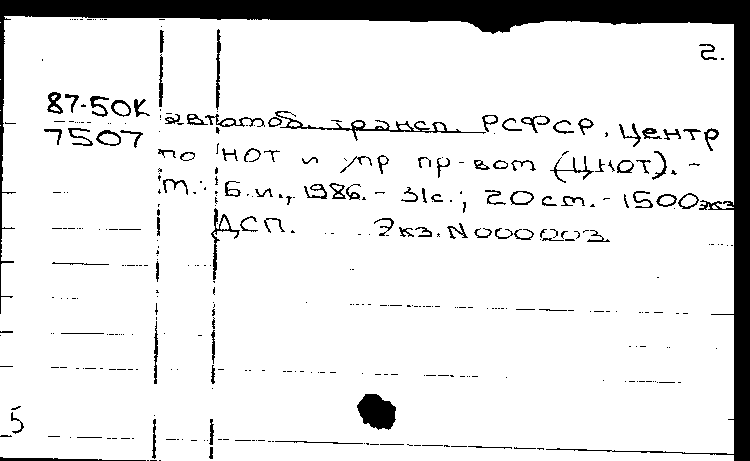 2.
87-50К автомоб. трансп. РСФСР, Центр
7507 по НОТ и упр пр-вом (ЦНОТ). -
М.: Б.и., 1986. - 31с.; 20 см. - 1500экз
ДСП. Экз. N000003.
5